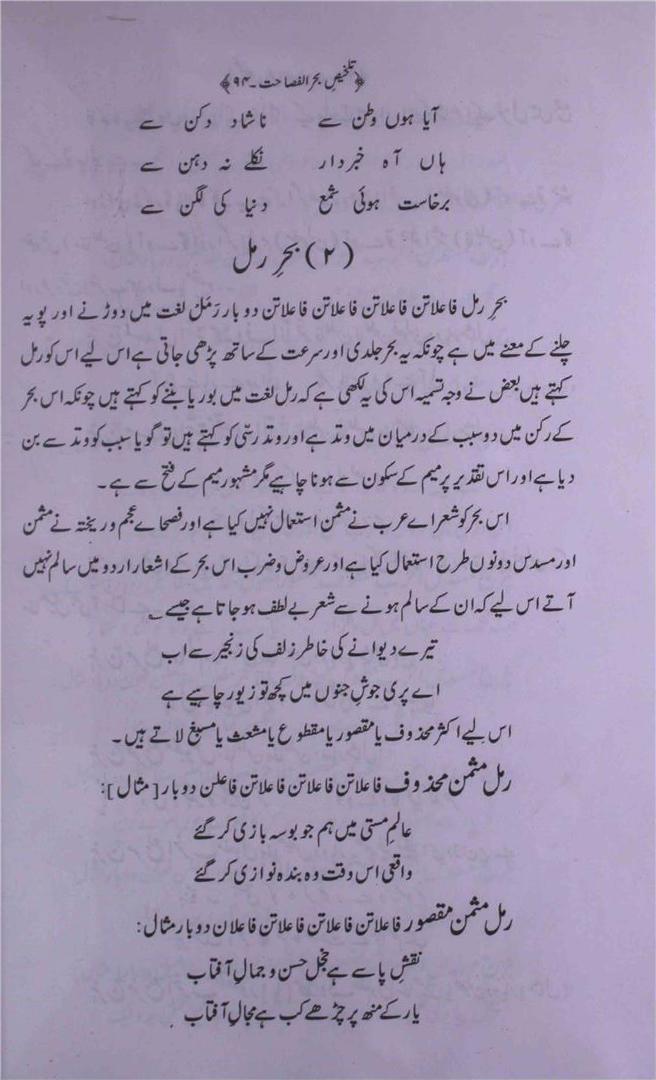 ﴿تلخیصِ بحر الفصاحت۔۹۴﴾
آیا ہوں وطن سے ناشاد دکن سے
ہاں آہ خبردار نکلے نہ دہن سے
برخاست ہوئی شمع دنیا کی لگن سے
(۲) بحرِ رمل
بحرِ رمل فاعلاتن فاعلاتن فاعلاتن فاعلاتن دوبار رَمَل لغت میں دوڑنے اور پویہ
چلنے کے معنے میں ہے چونکہ یہ بحر جلدی اور سرعت کے ساتھ پڑھی جاتی ہے اس لیے اس کو رمل
کہتے ہیں بعض نے وجہ تسمیہ اس کی یہ لکھی ہے کہ رمل لغت میں بوریا بننے کو کہتے ہیں چونکہ اس بحر
کے رکن میں دو سبب کے درمیان میں وتد ہے اور وتد رسّی کو کہتے ہیں تو گویا سبب کو وتد سے بن
دیا ہے اور اس تقدیر پر میم کے سکون سے ہونا چاہیے مگر مشہور میم کے فتح سے ہے۔
اس بحر کو شعراے عرب نے مثمن استعمال نہیں کیا ہے اور فصحاے عجم و ریختہ نے مثمن
اور مسدس دونوں طرح استعمال کیا ہے اور عروض و ضرب اس بحر کے اشعار اردو میں سالم نہیں
آتے اس لیے کہ ان کے سالم ہونے سے شعر بے لطف ہو جاتا ہے جیسے؎
تیرے دیوانے کی خاطر زلف کی زنجیر سے اب
اے پری جوشِ جنوں میں کچھ تو زیور چاہیے ہے
اس لیے اکثر محذوف یا مقصور یا مقطوع یا مشعث یا مسبغ لاتے ہیں۔
رمل مثمن محذوف فاعلاتن فاعلاتن فاعلاتن فاعلن دوبار [مثال]:
عالمِ مستی میں ہم جو بوسہ بازی کر گئے
واقعی اس وقت وہ بندہ نوازی کر گئے
رمل مثمن مقصور فاعلاتن فاعلاتن فاعلاتن فاعلان دوبار مثال:
نقشِ پا سے ہے خجل حسن و جمالِ آفتاب
یار کے منھ پر چڑھے کب ہے مجالِ آفتاب